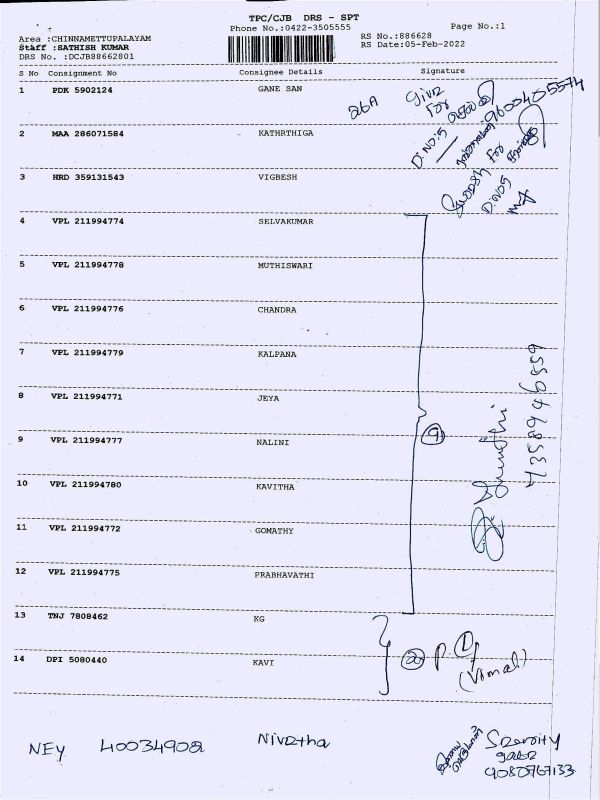 TPC/CJB DRS - SPT
Phone No.:0422-3505555
Page No.:1
Area :CHINNAMETTUPALAYAM
Staff :SATHISH KUMAR
DRS No. :DCJB88662801
RS No.:886628
RS Date:05-Feb-2022
S No Consignment No Consignee Details Signature
1 PDK 5902124 GANE SAN
2 MAA 286071584 KATHRTHIGA
3 HRD 359131543 VIGBESH
4 VPL 211994774 SELVAKUMAR
5 VPL 211994778 MUTHISWARI
6 VPL 211994776 CHANDRA
7 VPL 211994779 KALPANA
8 VPL 211994771 JEYA
9 VPL 211994777 NALINI
10 VPL 211994780 KAVITHA
11 VPL 211994772 GOMATHY
12 VPL 211994775 PRABHAVATHI
13 TNJ 7808462 KG
14 DPI 5080440 KAVI
for
9600405574
D.No:5
for
D.No5
9
(Vimal)
NEY 40034902 Nivetha
9080767133